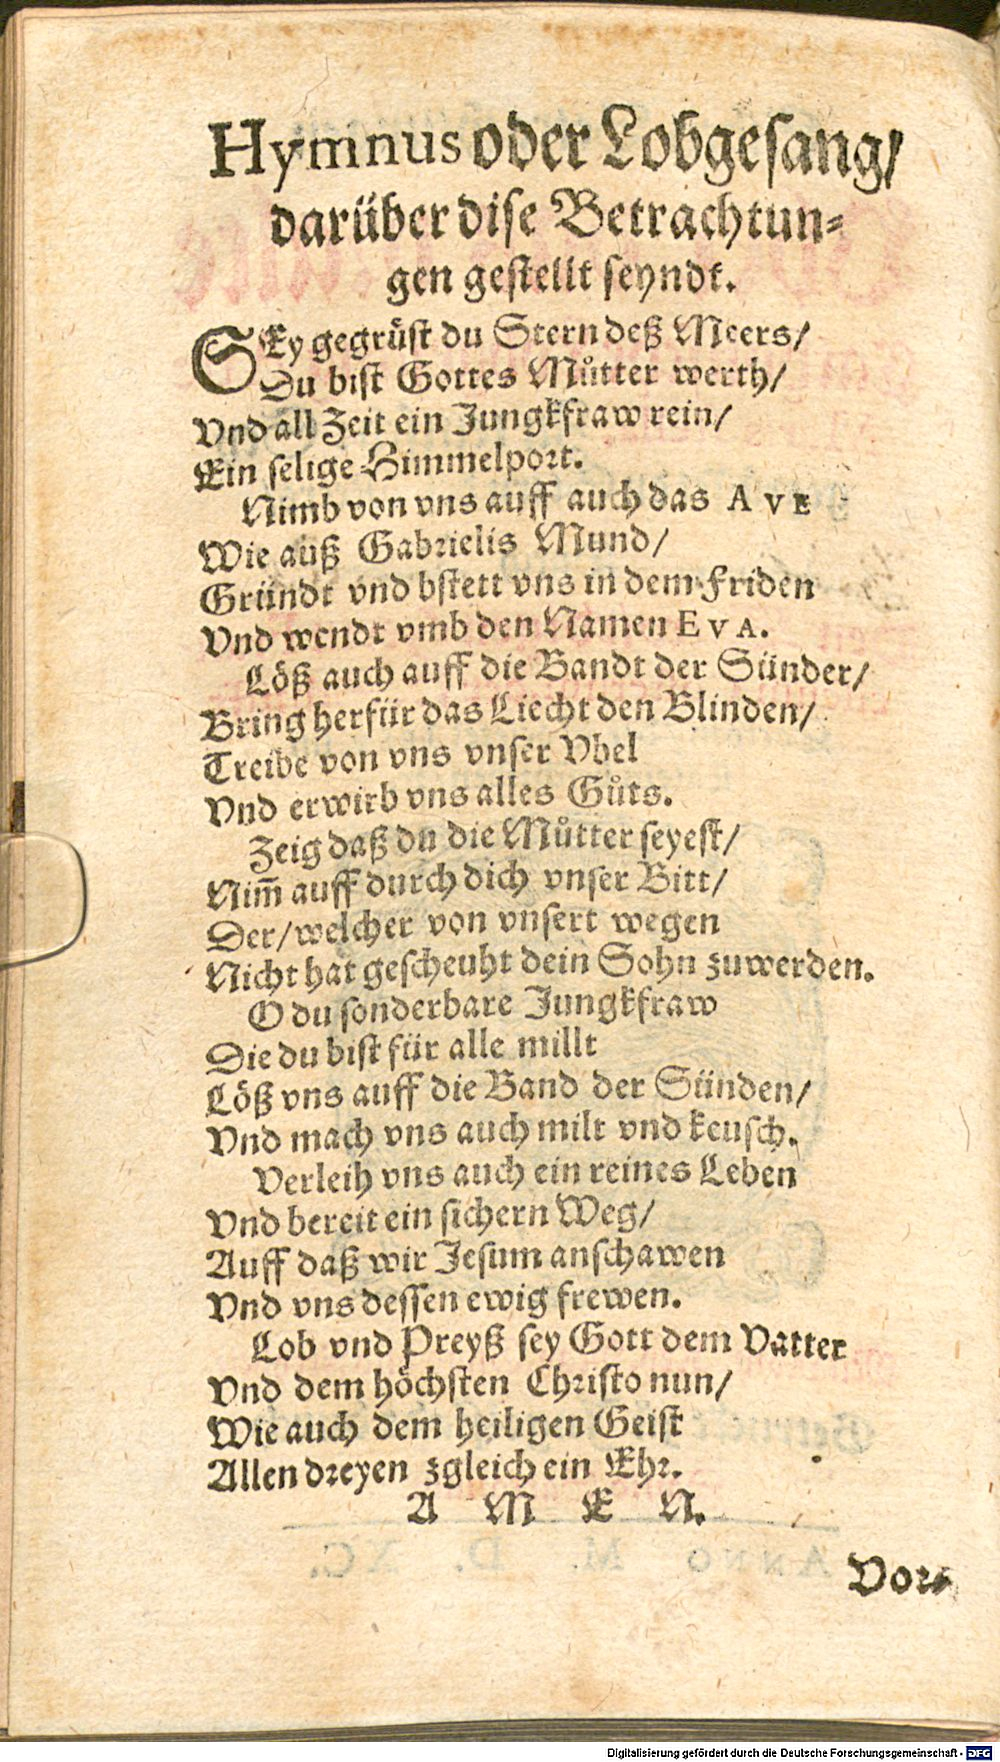 Hymnus oder Lobgesang/
darüber dise Betrachtun⸗
gen gestellt seyndt.
SEy gegrüst du Stern deß Meers/
Du bist Gottes Můtter werth/
Vnd all Zeit ein Jungkfraw rein/
Ein selige Himmelport.
Nimb von vns auff auch das AVE
Wie auß Gabrielis Mund/
Gründt vnd bstett vns in dem Friden
Vnd wendt vmb den Namen EVA.
Löß auch auff die Bandt der Sünder/
Bring herfür das Liecht den Blinden/
Treibe von vns vnser Vbel
Vnd erwirb vns alles Gůts.
Zeig daß du die Můtter seyest/
Nim̃ auff durch dich vnser Bitt/
Der/welcher von vnsert wegen
Nicht hat gescheuht dein Sohn zuwerden.
O du sonderbare Jungkfraw
Die du bist für alle millt
Löß vns auff die Band der Sünden/
Vnd mach vns auch milt vnd keusch.
Verleih vns auch ein reines Leben
Vnd bereit ein sichern Weg/
Auff daß wir Jesum anschawen
Vnd vns dessen ewig frewen.
Lob vnd Preyß sey Gott dem Vatter
Vnd dem höchsten Christo nun/
Wie auch dem heiligen Geist
Allen dreyen zgleich ein Ehr.
A M E N.
Vor⸗
Digitalisierung gefördert durch die Deutsche Forschungsgemeinschaft - DFG